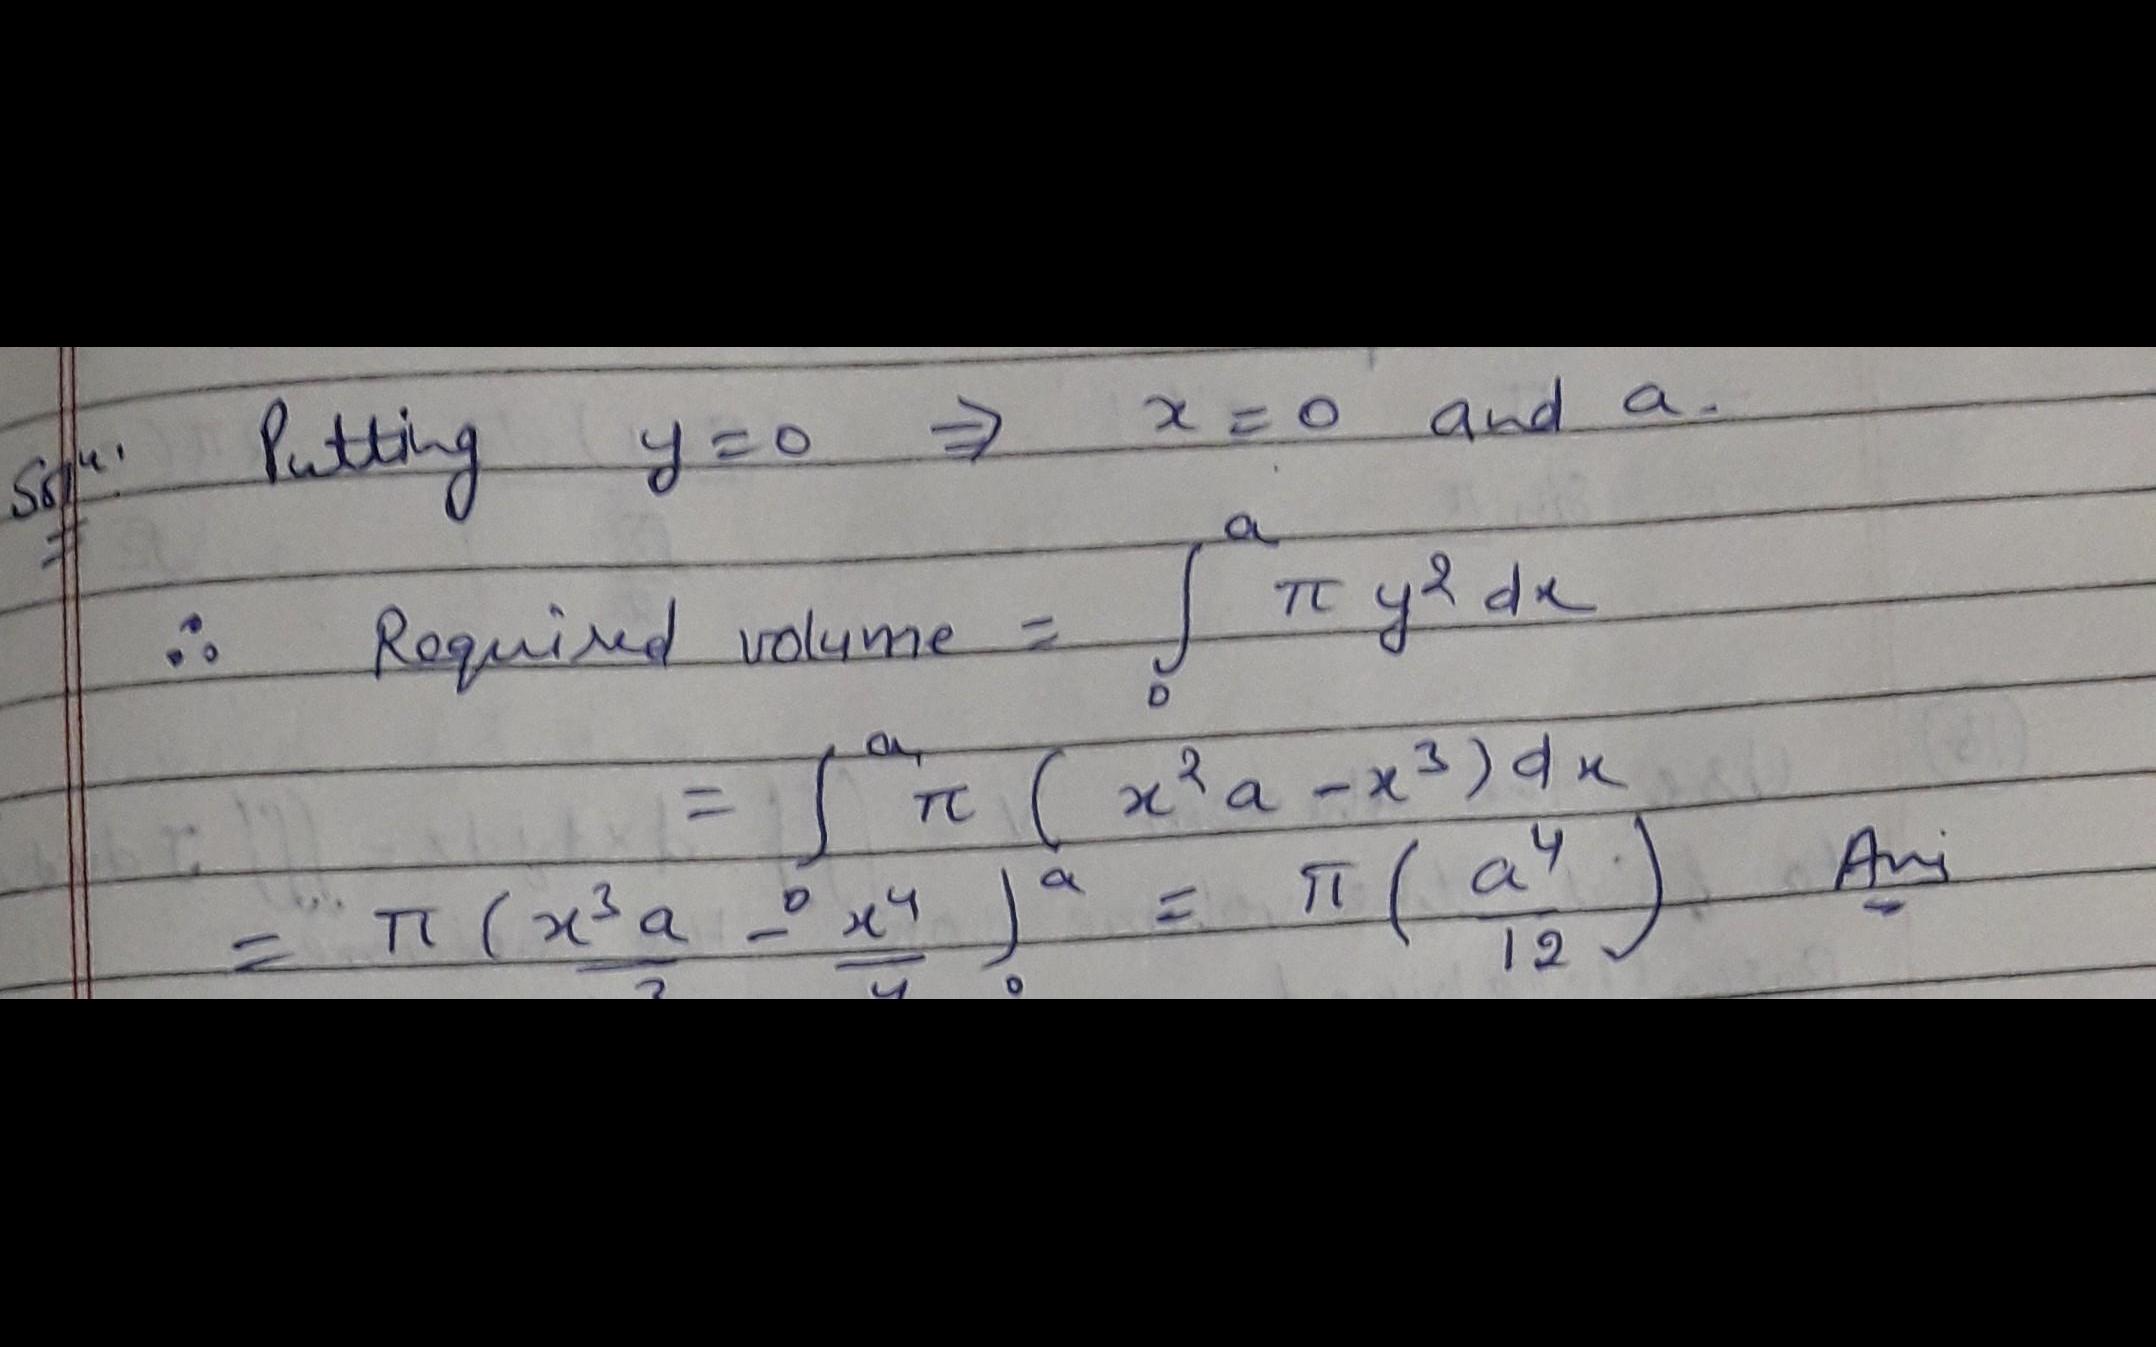 Soln. Putting y=0 ⇒ x=0 and a.
∴ Required volume = ∫₀ᵃ π y² dx
= ∫₀ᵃ π ( x²a - x³) dx
= π ( x³a/3 - x⁴/4 )₀ᵃ = π ( a⁴/12 ) Ans